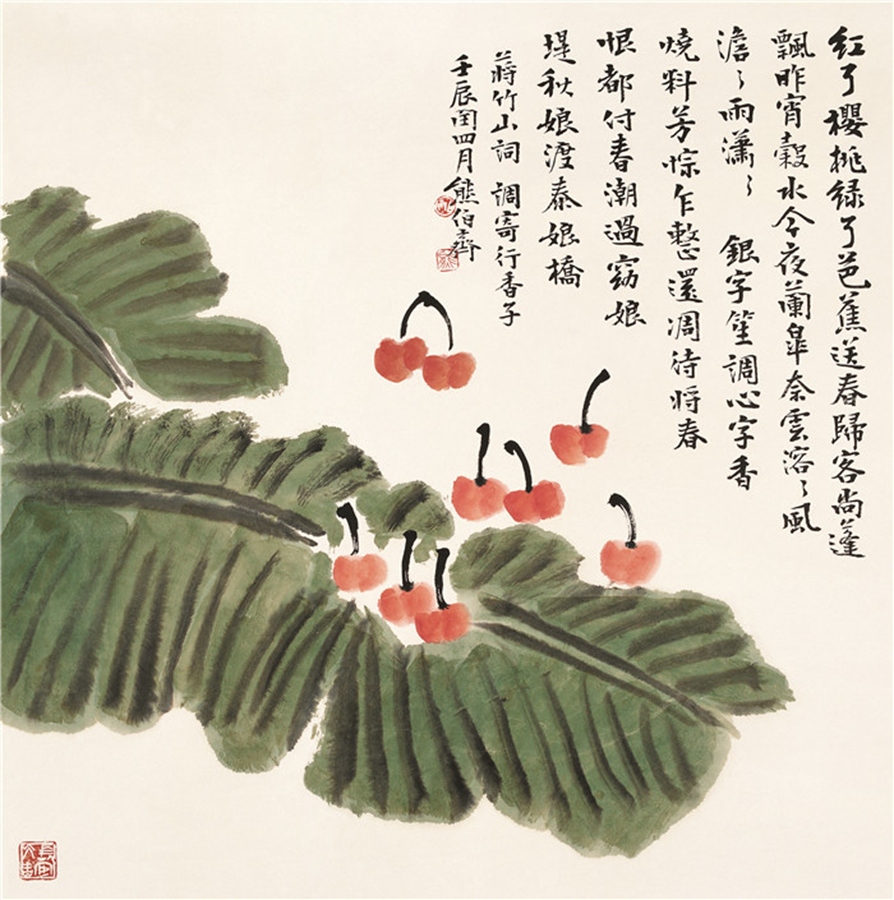 红了櫻桃绿了芭蕉送春歸客尚蓬
飄昨宵穀水今夜蘭皋奈雲溶〻風
澹〻雨瀟〻 銀字笙調心字香
燒料芳悰乍整還凋待將春
恨都付春潮過窈娘
堤秋娘渡泰娘橋
蔣竹山詞 調寄行香子
壬辰閏四月熊伯齊